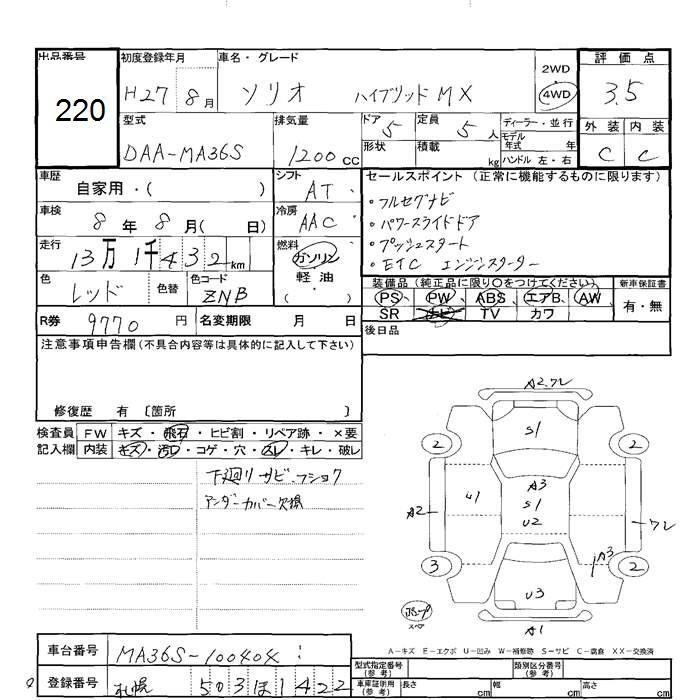 出品番号
220
初度登録年月
H27 8月
車名・グレード
ソリオ ハイブリッド MX
2WD
4WD
評価点
3.5
外装 内装
C C
型式
DAA-MA36S
排気量
1200cc
ドア
5
定員
5人
形状
積載
kg
ディーラー・並行
モデル年式 年
ハンドル 左・右
車歴
自家用・( )
シフト
AT
車検
8年 8月( 日)
冷房
AAC
走行
13万 1千432km
燃料
ガソリン
軽油
色
レッド
色替
色コード
ZNB
セールスポイント (正常に機能するものに限ります)
・フルセグナビ
・パワースライドドア
・プッシュスタート
・ETC エンジンスターター
装備品 (純正品に限り〇をつけてください)
新車保証書
PS PW ABS エアB. AW
有・無
SR ナビ TV カワ
R券 9770円
名変期限 月 日
後日品
注意事項申告欄(不具合内容等は具体的に記入して下さい)
修復歴 有 〔箇所 〕
検査員記入欄
FW キズ・飛石・ヒビ割・リペア跡・×要
内装 キズ・汚レ・コゲ・穴・スレ・キレ・破レ
下廻りサビ・フショク
アンダーカバー欠損
A2.ワレ
2 S1 2
A3
U1 S1
A2 U2 ワレ
A3
3 2
U3
スペア
A1
A-キズ E-エクボ U-凹み W-補修跡 S-サビ C-腐食 XX-交換済
車台番号
MA36S-100404
登録番号
札幌 503 ほ 1422
型式指定番号(参考)
類別区分番号(参考)
車庫証明用(参考)
長さ cm
幅 cm
高さ cm